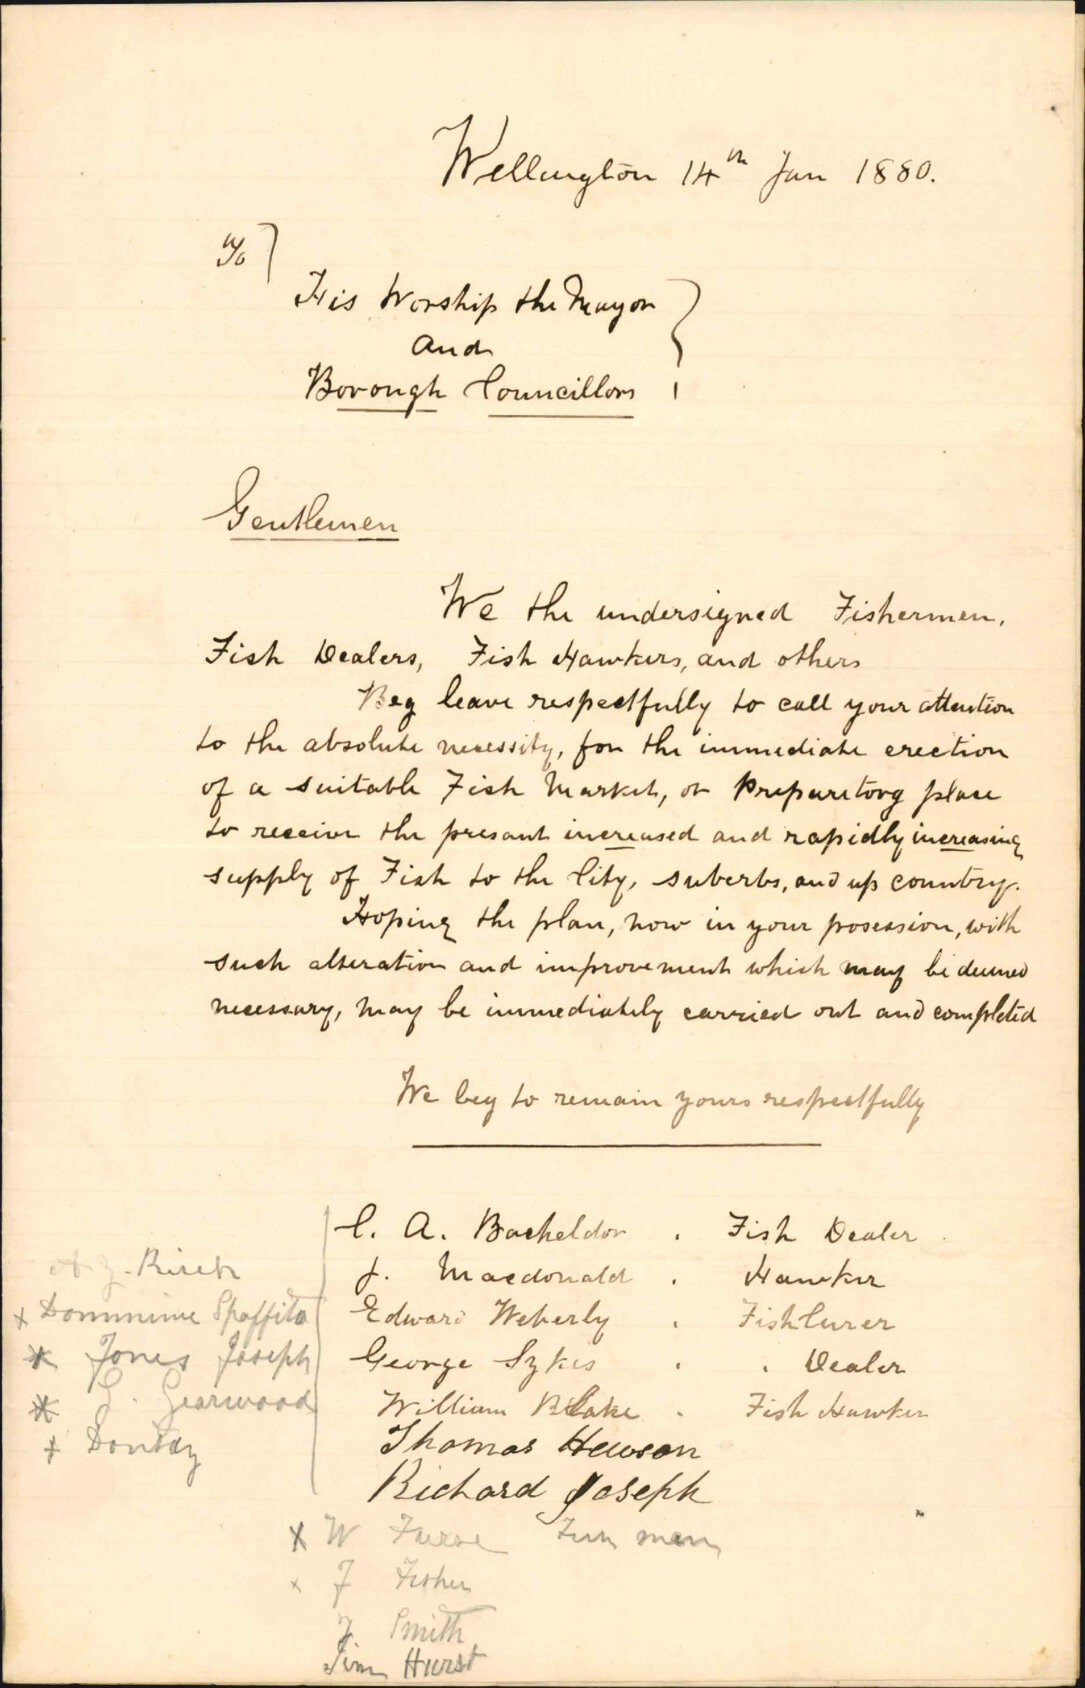 Wellington 14th Jan 1880.
To
His Worship the Mayor
and
Borough Councillors
Gentlemen
We the undersigned Fishermen,
Fish Dealers, Fish Hawkers, and others
Beg leave respectfully to call your attention
to the absolute necessity, for the immediate erection
of a suitable Fish Market, or Preparitory place
to receive the presant increased and rapidly increasing
supply of Fish to the City, suberbs, and up country.
Hoping the plan, now in your posession, with
such alteration and improvement which may be deemed
necessary, may be immediately carried out and completed
We beg to remain yours respectfully
C. A. Bacheldor . Fish Dealer
J. Macdonald . Hawker
Edward Weherly . Fish Curer
George Sykes . . Dealer
William Blake . Fish Hawker
Thomas Hewson
Richard Joseph
Birch
x Dommine Spoffita
x Jones Joseph
x Gearwood
x
x W men
x F Fisher
Smith
Jim Hurst